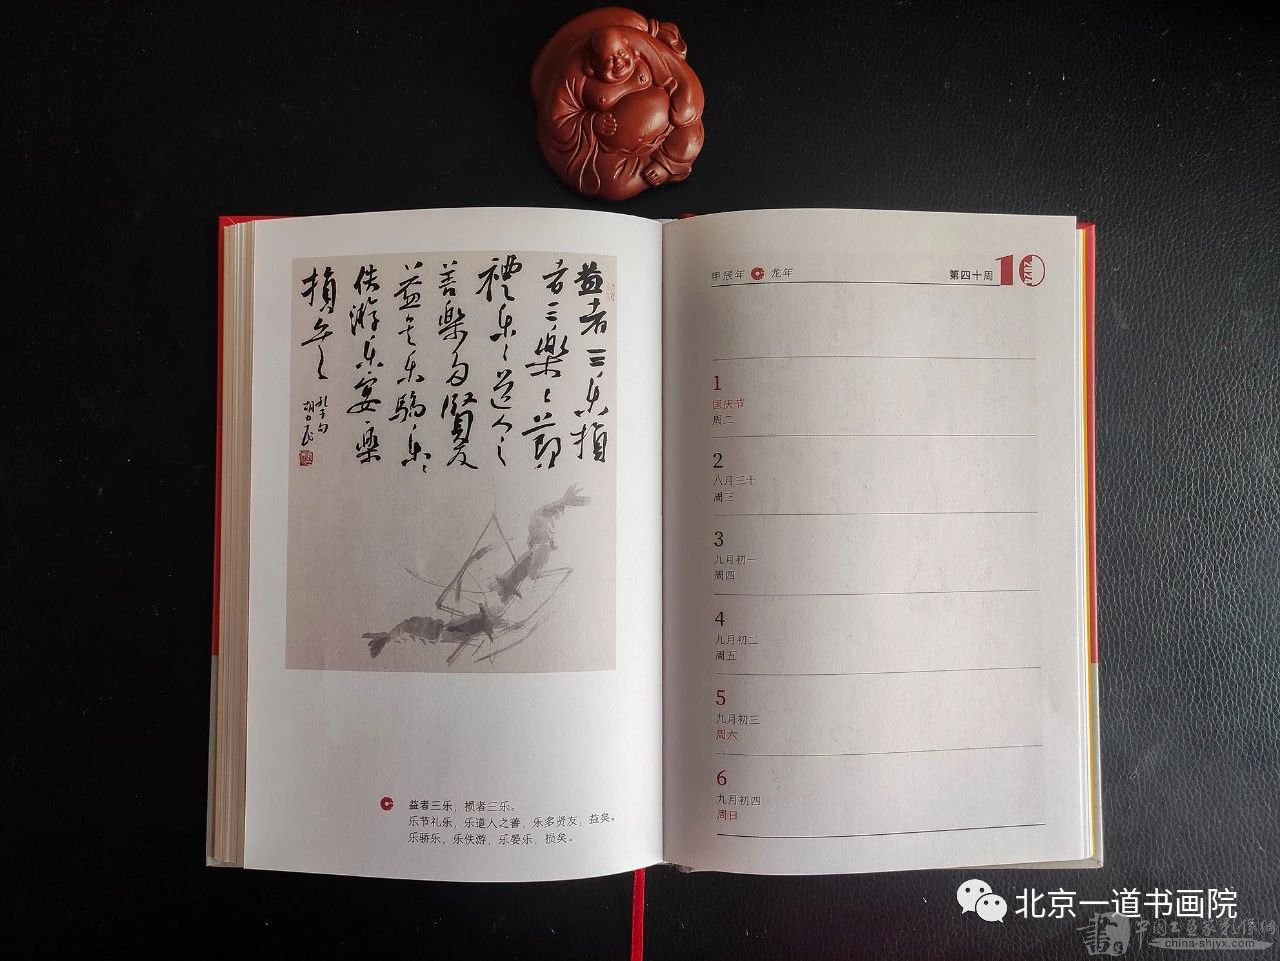 益者三乐損
者三樂〻節
禮乐〻道人之
善樂多賢友
益矣乐驕乐〻
佚游乐宴樂
損矣
孔子句
益者三乐，损者三乐。
乐节礼乐，乐道人之善，乐多贤友，益矣。
乐骄乐，乐佚游，乐晏乐，损矣。
甲辰年 龙年
第四十周 10
1
国庆节
周二
2
八月三十
周三
3
九月初一
周四
4
九月初二
周五
5
九月初三
周六
6
九月初四
周日
北京一道书画院
china-shjyx.com